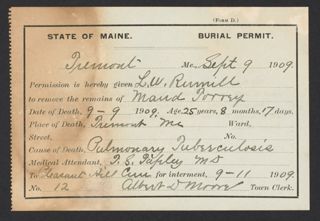 (FORM D.)
STATE OF MAINE. BURIAL PERMIT.
Tremont Me. Sept 9 1909.
Permission is hereby given L. W. Rumill
to remove the remains of Maud Torrey
Date of Death, 9-9 1909. Age 25 years, 8 months, 17 days.
Place of Death, Tremont Me Ward,
Street, No.
Cause of Death, Pulmonary Tuberculosis
Medical Attendant, T. S. Tapley MD
To Pleasant Hill Cem for interment, 9-11 1909.
No. 12 Albert D Moore Town Clerk.